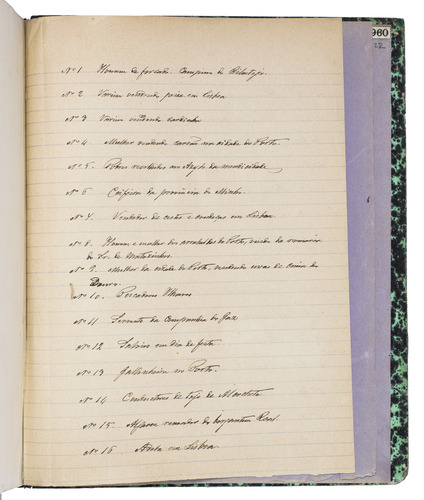 960
22
Nº 1 Homem de forcado. Campino do Ribatejo.
Nº 2 Varina vendendo peixe em Lisboa
Nº 3 Varina vendendo sardinha
Nº 4 Mulher vendendo carvão na cidade do Porto.
Nº 5. Pobres recolhidos no Asylo da mendicidade
Nº 6 Caipira da provincia do Minho
Nº 7. Vendedor de cestos e em Lisboa
Nº 8. Homem e mulher dos arrabaldes do Porto, vindo da romaria
do Sr. de Matosinhos.
Nº 9. Mulher da cidade do Porto, vendendo do
Douro.
Nº 10. Pescadores Ilhavos
Nº 11 Servente da Companhia do Gaz
Nº 12 Saloios em dia de festa
Nº 13 Gallinheira no Porto.
Nº 14 Conductores de
Nº 15. remador do bergantim Real.
Nº 16 em Lisboa